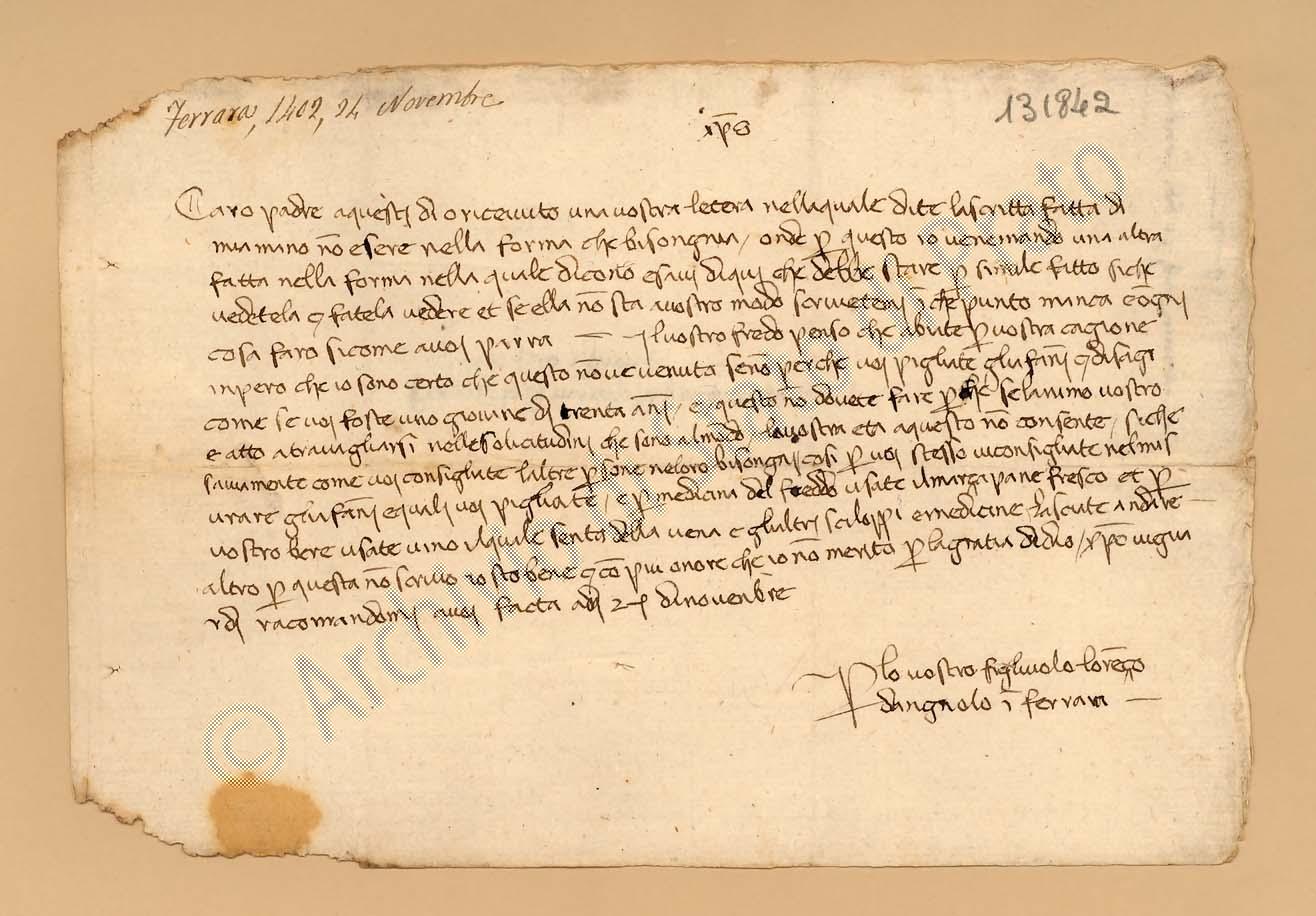 Ferrara, 1402, 24 Novembre
131842
xp̄s
Caro padre aquestj dj o ricevuto una vostra letera nella quale dite la scritta fatta di
mia mano nō esere nella forma che bisongnia / onde p̄ questo io ve ne mando una altra
fatta nella forma nella quale dicono e savj di quj che debbe stare p̄ simile fatto siche
vedetela e fatela vedere et se ella nō sta a vostro modo scrivetemj ī che punto manca e ōgnj
cosa faro si come a voj parra — Il vostro fredo penso che abiate p̄ vostra cagione
inpero che io sono certo che questo nō v e venuto se nō perche voj pigliate gli afannj e disagi
come se voj foste uno giovine dj trenta annj / e questo nō dovete fare p̄ che se l animo vostro
e atto a travagliarsi nelle solicitudinj che sono al mōdo la vostra eta a questo nō consente / siche
saviamente come voj consigliate l altre p̄sone ne loro bisongnj cosi p̄ voj stesso vi consigliate nel mis
urare gli afannj e qualj voj pigliate / e p̄ medicina del freddo usate il marzapane fresco et p̄
vostro bere usate vino il quale senta della vena e gli altrj sciloppi e medicine lasciate andare —
altro p̄ questa nō scrivo io sto bene e cō piu onore che io nō merito p̄ la gratia di dio / xp̄o vi gua
rdj racomandomj a voj facta adj 24 di novenbre
P lo vostro figliuolo lorēzo
d angnolo ī ferrara —
© Archivio di Stato di Prato